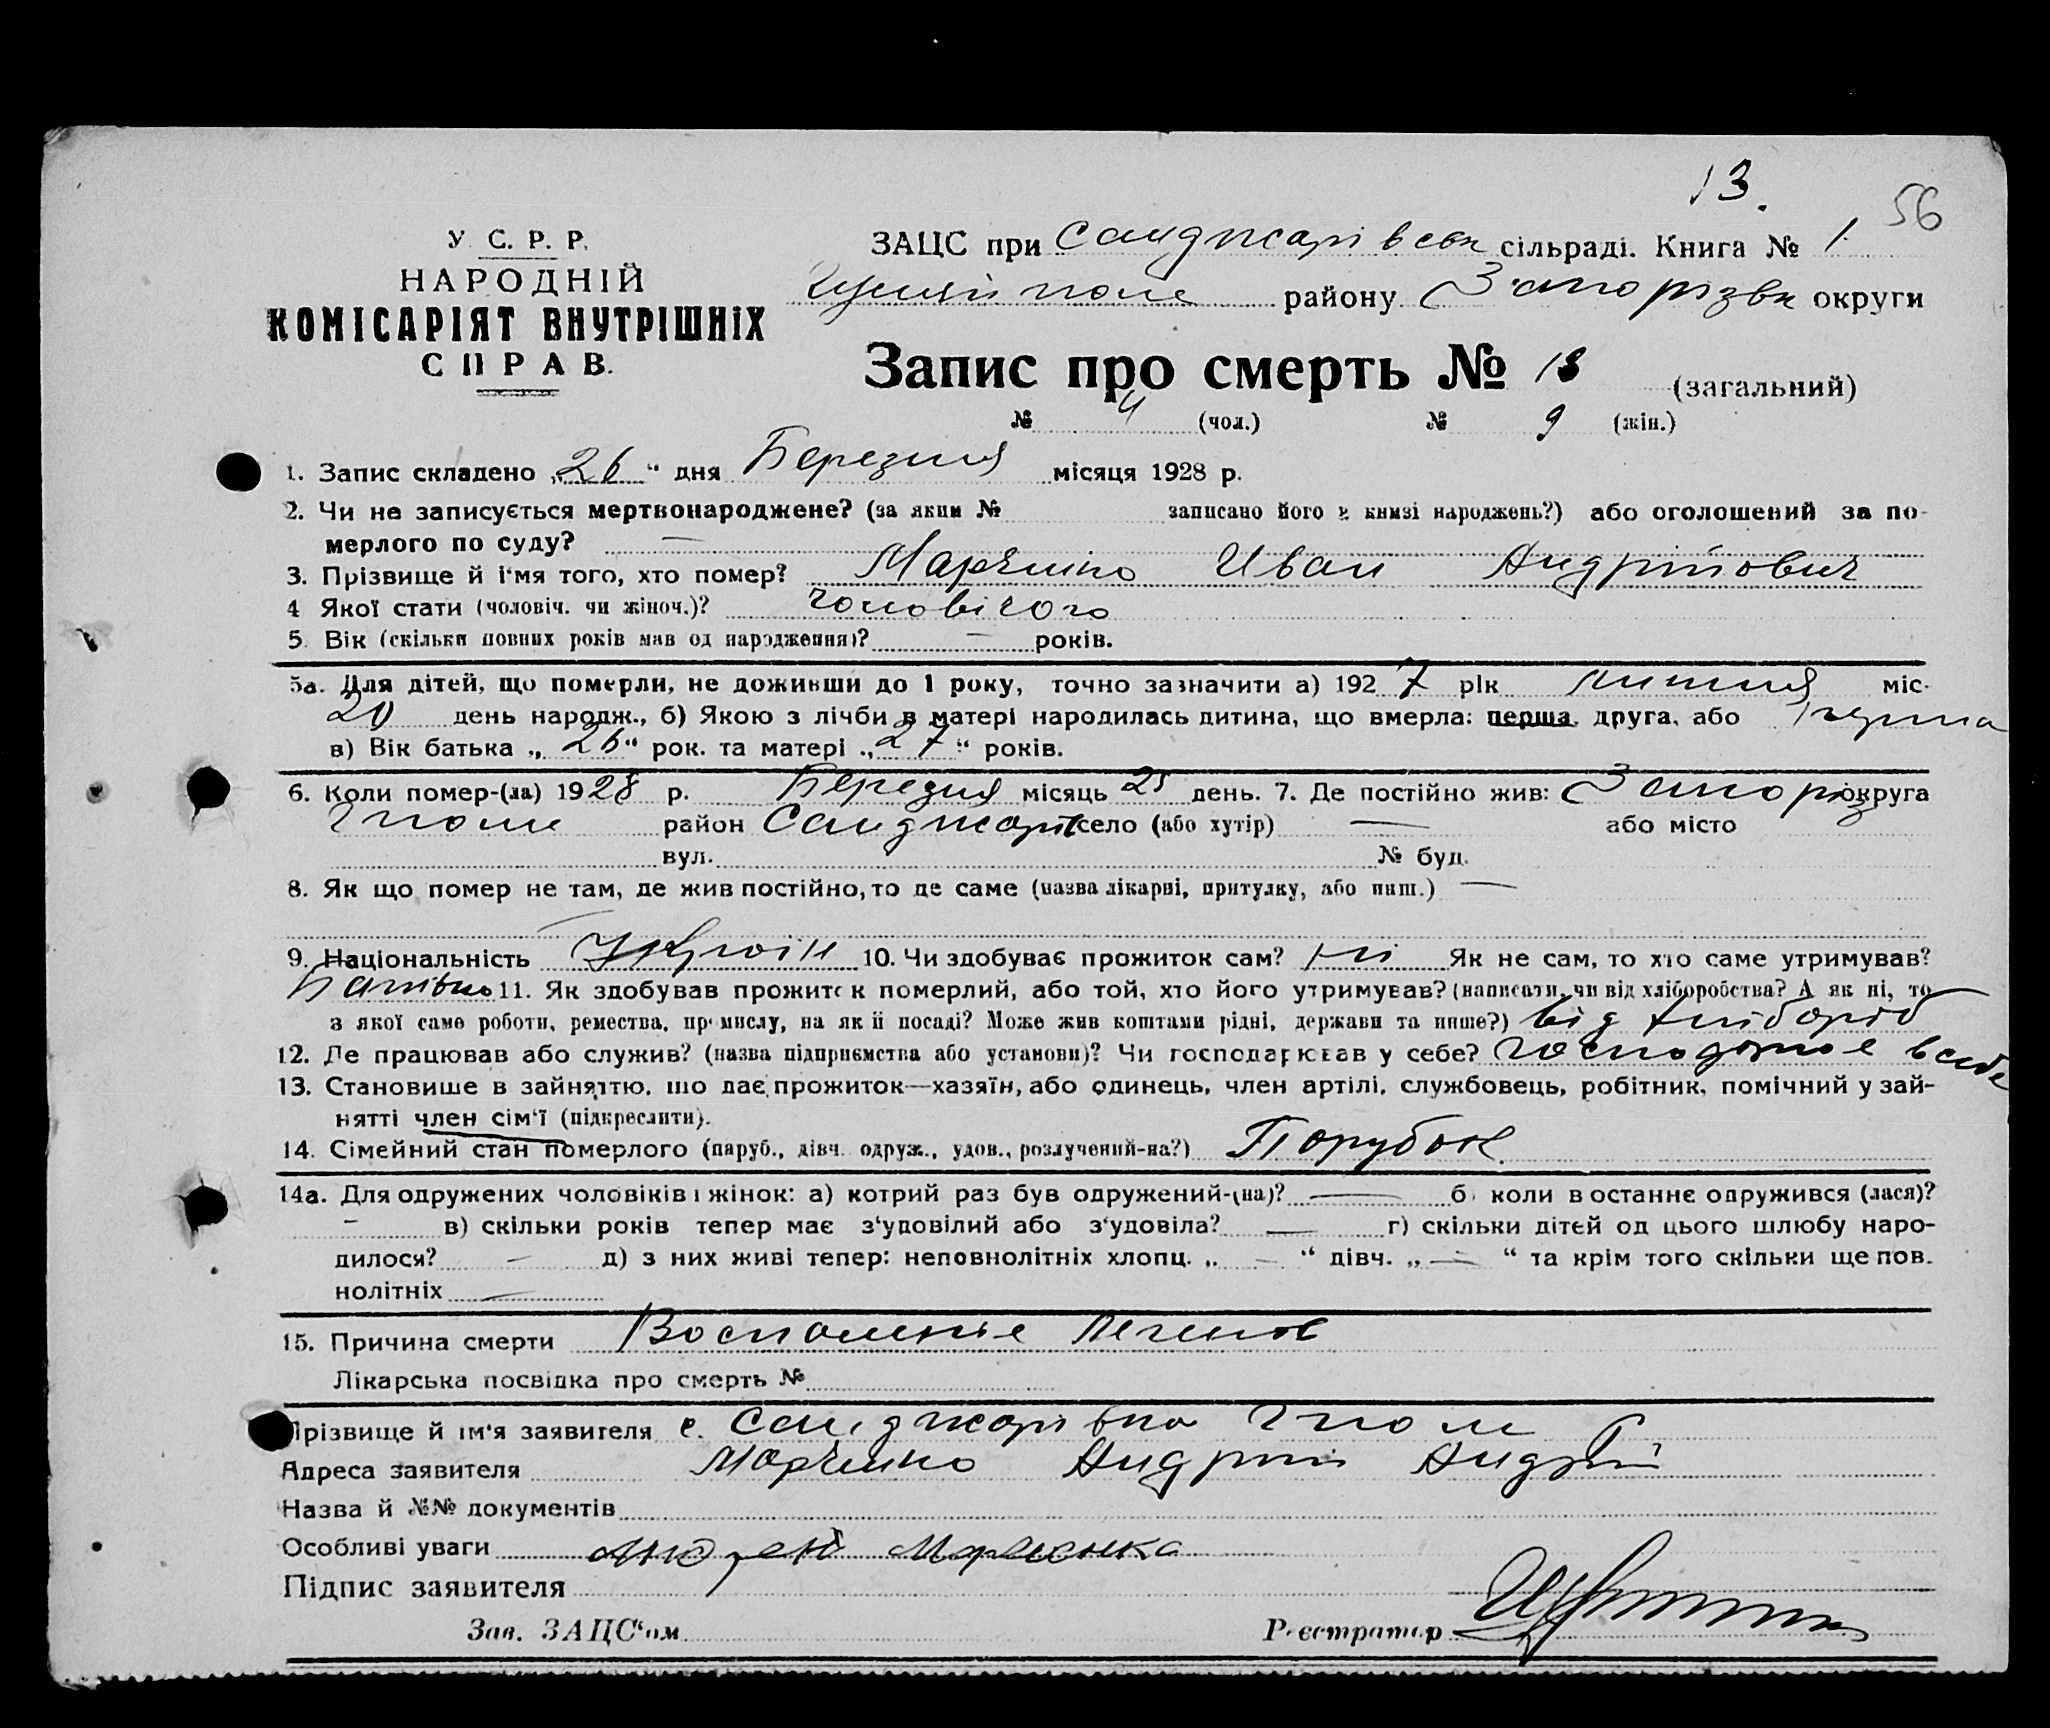 13.
56
У. С. Р. Р.
НАРОДНІЙ
КОМІСАРІЯТ ВНУТРІШНІХ
СПРАВ.
ЗАЦС при Санджарівськ сільраді. Книга № 1.
Гуляй поле району Запорізьк округи
Запис про смерть № 13 (загальний)
№ 4 (чол.) № 9 (жін.)
1. Запис складено „26“ дня Березня місяця 1928 р.
2. Чи не записується мертвонароджене? (за яким № записано його в книзі народжень?) або оголошений за по-
мерлого по суду? —
3. Прізвище й ім'я того, хто помер? Марченко Иван Андрійович
4 Якої стати (чоловіч. чи жіноч.)? чоловічого
5. Вік (скільки повних років мав од народження)? — років.
5а. Для дітей, що померли, не доживши до 1 року, точно зазначити а) 1927 рік липня міс.
20 день народж., б) Якою з лічби в матері народилась дитина, що вмерла: перша, друга, або
в) Вік батька „26“ рок. та матері „27“ років.
6. Коли помер-(ла) 1928 р. Березня місяць 25 день. 7. Де постійно жив: Запоріз округа
Гполе район Санджарів село (або хутір) — або місто
вул. № буд.
8. Як що помер не там, де жив постійно, то де саме (назва лікарні, притулку, або инш.) —
9. Національність Україн 10. Чи здобуває прожиток сам? ні Як не сам, то хто саме утримував?
Батько 11. Як здобував прожиток померлий, або той, хто його утримував? (написати, чи від хліборобства? А як ні, то
з якої саме роботи, ремества, промислу, на якій посаді? Може жив коштами рідні, держави та инше?) від хлібороб
12. Де працював або служив? (назва підприємства або установи)? Чи господарював у себе? господарює в себе
13. Становише в зайняттю, що дає прожиток—хазяїн, або одинець, член артілі, службовець, робітник, помічний у зай-
нятті член сім'ї (підкреслити).
14. Сімейний стан померлого (паруб., дівч. одруж., удов., розлучений-на?) Парубок.
14а. Для одружених чоловіків і жінок: а) котрий раз був одружений-(на)? — б) коли в останнє одружився (лася)?
— в) скільки років тепер має з'удовілий або з'удовіла? — г) скільки дітей од цього шлюбу наро-
дилося? — д) з них живі тепер: неповнолітніх хлопц. „—“ дівч. „—“ та крім того скільки ще пов.
нолітніх —
15. Причина смерти Воспаленіе легенов
Лікарська посвідка про смерть №
Прізвище й ім'я заявителя с. Санджарівка Гполе
Адреса заявителя Марченко Андрій Андрій
Назва й №№ документів
Особливі уваги Андрей Марченка
Підпис заявителя
Зав. ЗАЦС'ом Реєстратор